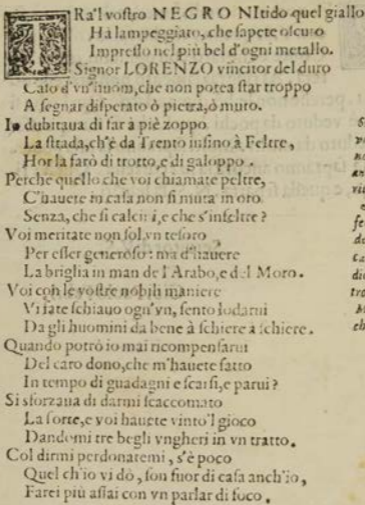 TRa'l vostro NEGRO NItido quel giallo
Ha lampeggiato, che sapete oscuro
Impresso nel più bel d'ogni metallo.
Signor LORENZO vincitor del duro
Caso d'vn'huom, che non potea star troppo
A segnar disperato ò pietra, ò muro.
Io dubitaua di far à piè zoppo
La strada, ch'è da Trento insino à Feltre,
Hor la farò di trotto, e di galoppo.
Perche quello che voi chiamate peltre,
C'hauete in casa non si muta in oro
Senza, che si calcii i, e che s'infeltre?
Voi meritate non sol vn tesoro
Per esser generoso: ma d'hauere
La briglia in man de l'Arabo, e del Moro.
Voi con le vostre nobili maniere
Vi fate schiauo ogn'vn, sento lodarui
Da gli huomini da bene à schiere à schiere.
Quando potrò io mai ricompensarui
Del caro dono, che m'hauete fatto
In tempo di guadagni e scarsi, e parui?
Si sforzaua di darmi scaccomatto
La sorte, e voi hauete vinto'l gioco
Dandomi tre begli vngheri in vn tratto.
Col dirmi perdonatemi, s'è poco
Quel ch'io vi dò, son fuor di casa anch'io,
Farei più assai con vn parlar di foco.